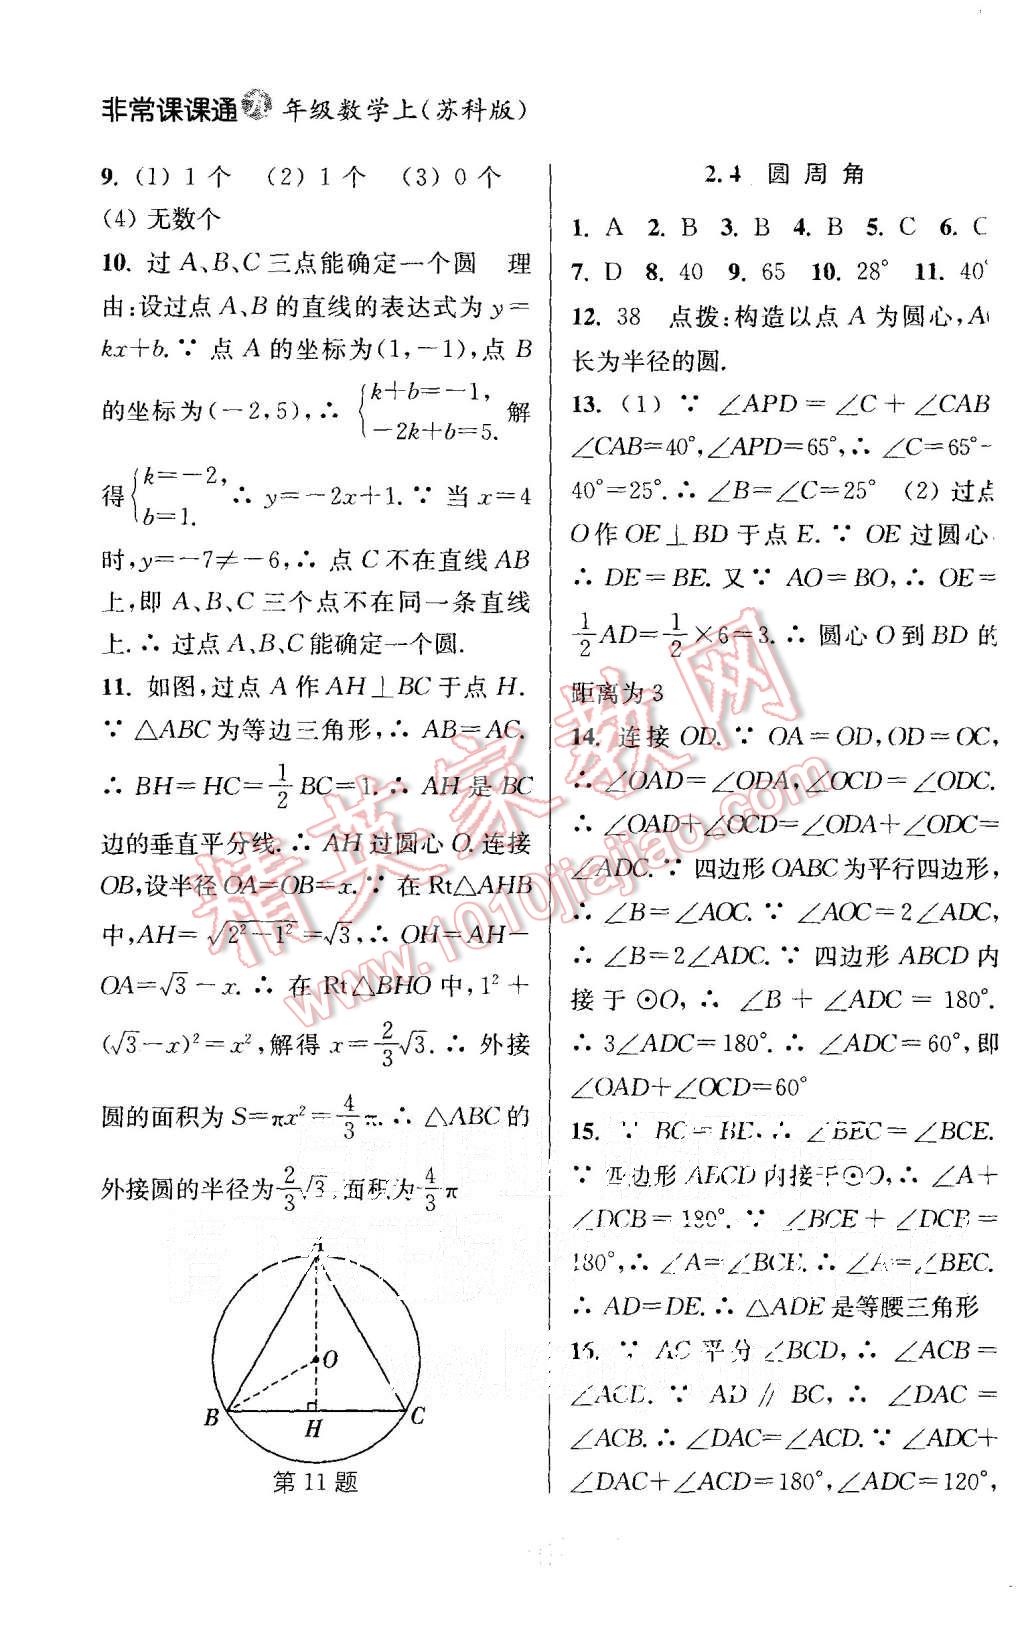 非常课课通 年级数学上(苏科版)
9. (1) 1个 (2) 1个 (3) 0个
(4) 无数个
10. 过A、B、C三点能确定一个圆 理
由:设过点A、B的直线的表达式为y=
kx+b. ∵ 点A的坐标为(1,-1),点B
的坐标为(-2,5),∴ {k+b=-1, -2k+b=5. 解
得{k=-2, b=1. ∴ y=-2x+1. ∵ 当x=4
时,y=-7≠-6,∴ 点C不在直线AB
上,即A、B、C三个点不在同一条直线
上. ∴ 过点A、B、C能确定一个圆.
11. 如图,过点A作AH⊥BC于点H.
∵ △ABC为等边三角形,∴ AB=AC.
∴ BH=HC=1/2 BC=1. ∴ AH是BC
边的垂直平分线. ∴ AH过圆心O. 连接
OB,设半径OA=OB=x. ∵ 在Rt△AHB
中,AH=√(2²-1²)=√3,∴ OH=AH-
OA=√3-x. ∴ 在Rt△BHO中,1²+
(√3-x)²=x²,解得x=2/3√3. ∴ 外接
圆的面积为S=πx²=4/3π. ∴ △ABC的
外接圆的半径为2/3√3,面积为4/3π
A
O
B
H
C
第11题
2.4 圆周角
1. A 2. B 3. B 4. B 5. C 6. C
7. D 8. 40 9. 65 10. 28° 11. 40°
12. 38 点拨:构造以点A为圆心,A
长为半径的圆.
13. (1) ∵ ∠APD=∠C+∠CAB
∠CAB=40°,∠APD=65°,∴ ∠C=65°-
40°=25°. ∴ ∠B=∠C=25° (2) 过点
O作OE⊥BD于点E. ∵ OE过圆心
∴ DE=BE. 又∵ AO=BO,∴ OE=
1/2 AD=1/2×6=3. ∴ 圆心O到BD的
距离为3
14. 连接OD. ∵ OA=OD,OD=OC,
∴ ∠OAD=∠ODA,∠OCD=∠ODC.
∴ ∠OAD+∠OCD=∠ODA+∠ODC=
∠ADC. ∵ 四边形OABC为平行四边形,
∴ ∠B=∠AOC. ∵ ∠AOC=2∠ADC,
∴ ∠B=2∠ADC. ∵ 四边形ABCD内
接于⊙O,∴ ∠B+∠ADC=180°.
∴ 3∠ADC=180°. ∴ ∠ADC=60°,即
∠OAD+∠OCD=60°
15. ∵ BC=BE,∴ ∠BEC=∠BCE.
∵ 四边形ABCD内接于⊙O,∴ ∠A+
∠DCB=180°. ∵ ∠BCE+∠DCB=
180°,∴ ∠A=∠BCE. ∴ ∠A=∠BEC.
∴ AD=DE. ∴ △ADE是等腰三角形
16. ∵ AC平分∠BCD,∴ ∠ACB=
∠ACD. ∵ AD∥BC,∴ ∠DAC=
∠ACB. ∴ ∠DAC=∠ACD. ∵ ∠ADC+
∠DAC+∠ACD=180°,∠ADC=120°,
精英家教网
www.1010jiajiao.com